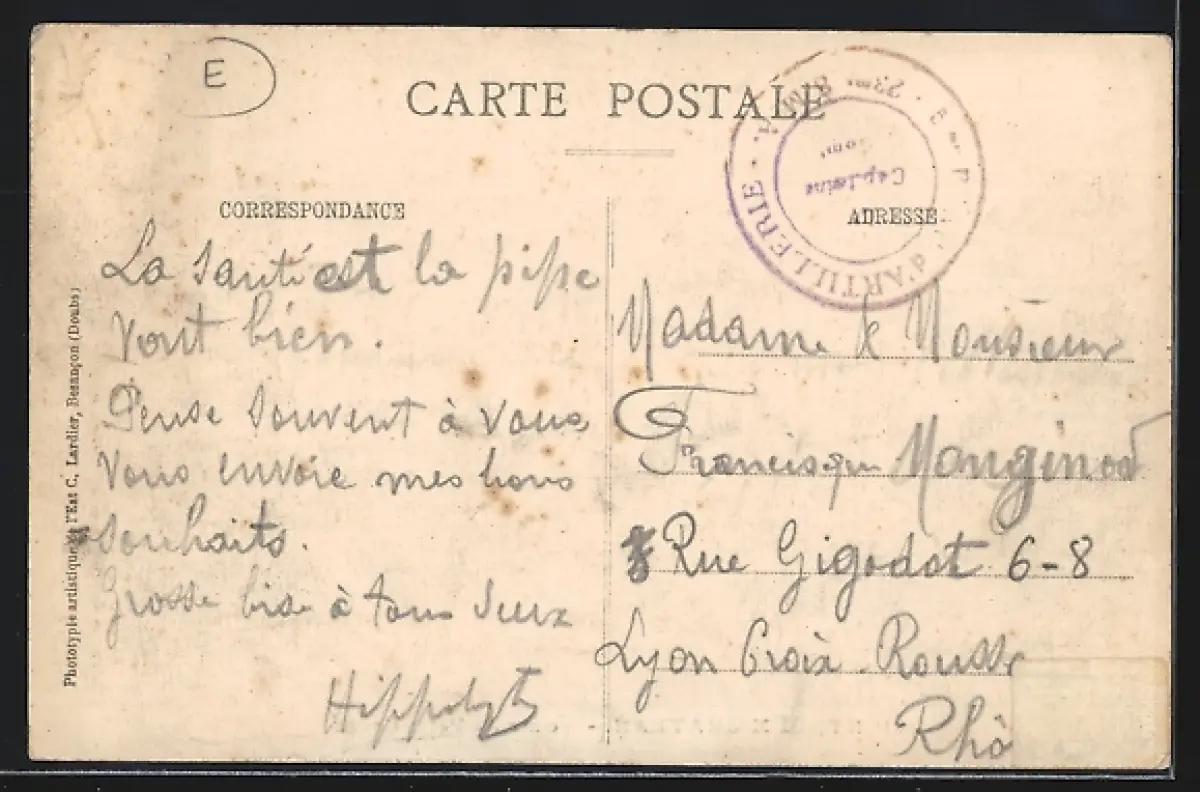 E
CARTE POSTALE
CORRESPONDANCE
La Santé est la pipe
Vont bien.
Pense Souvent à Vous
Vous envoie mes bons
Souhaits.
Grosse bise à tous deux
Hippolyte
Phototypie artistique de l'Est C. Lardier, Besançon (Doubs)
d'ARTILLERIE
23me
Capitaine
Comt
ADRESSE
Madame & Monsieur
Francisque Manginot
Rue Gigodot 6-8
Lyon Croix Rousse
Rhô